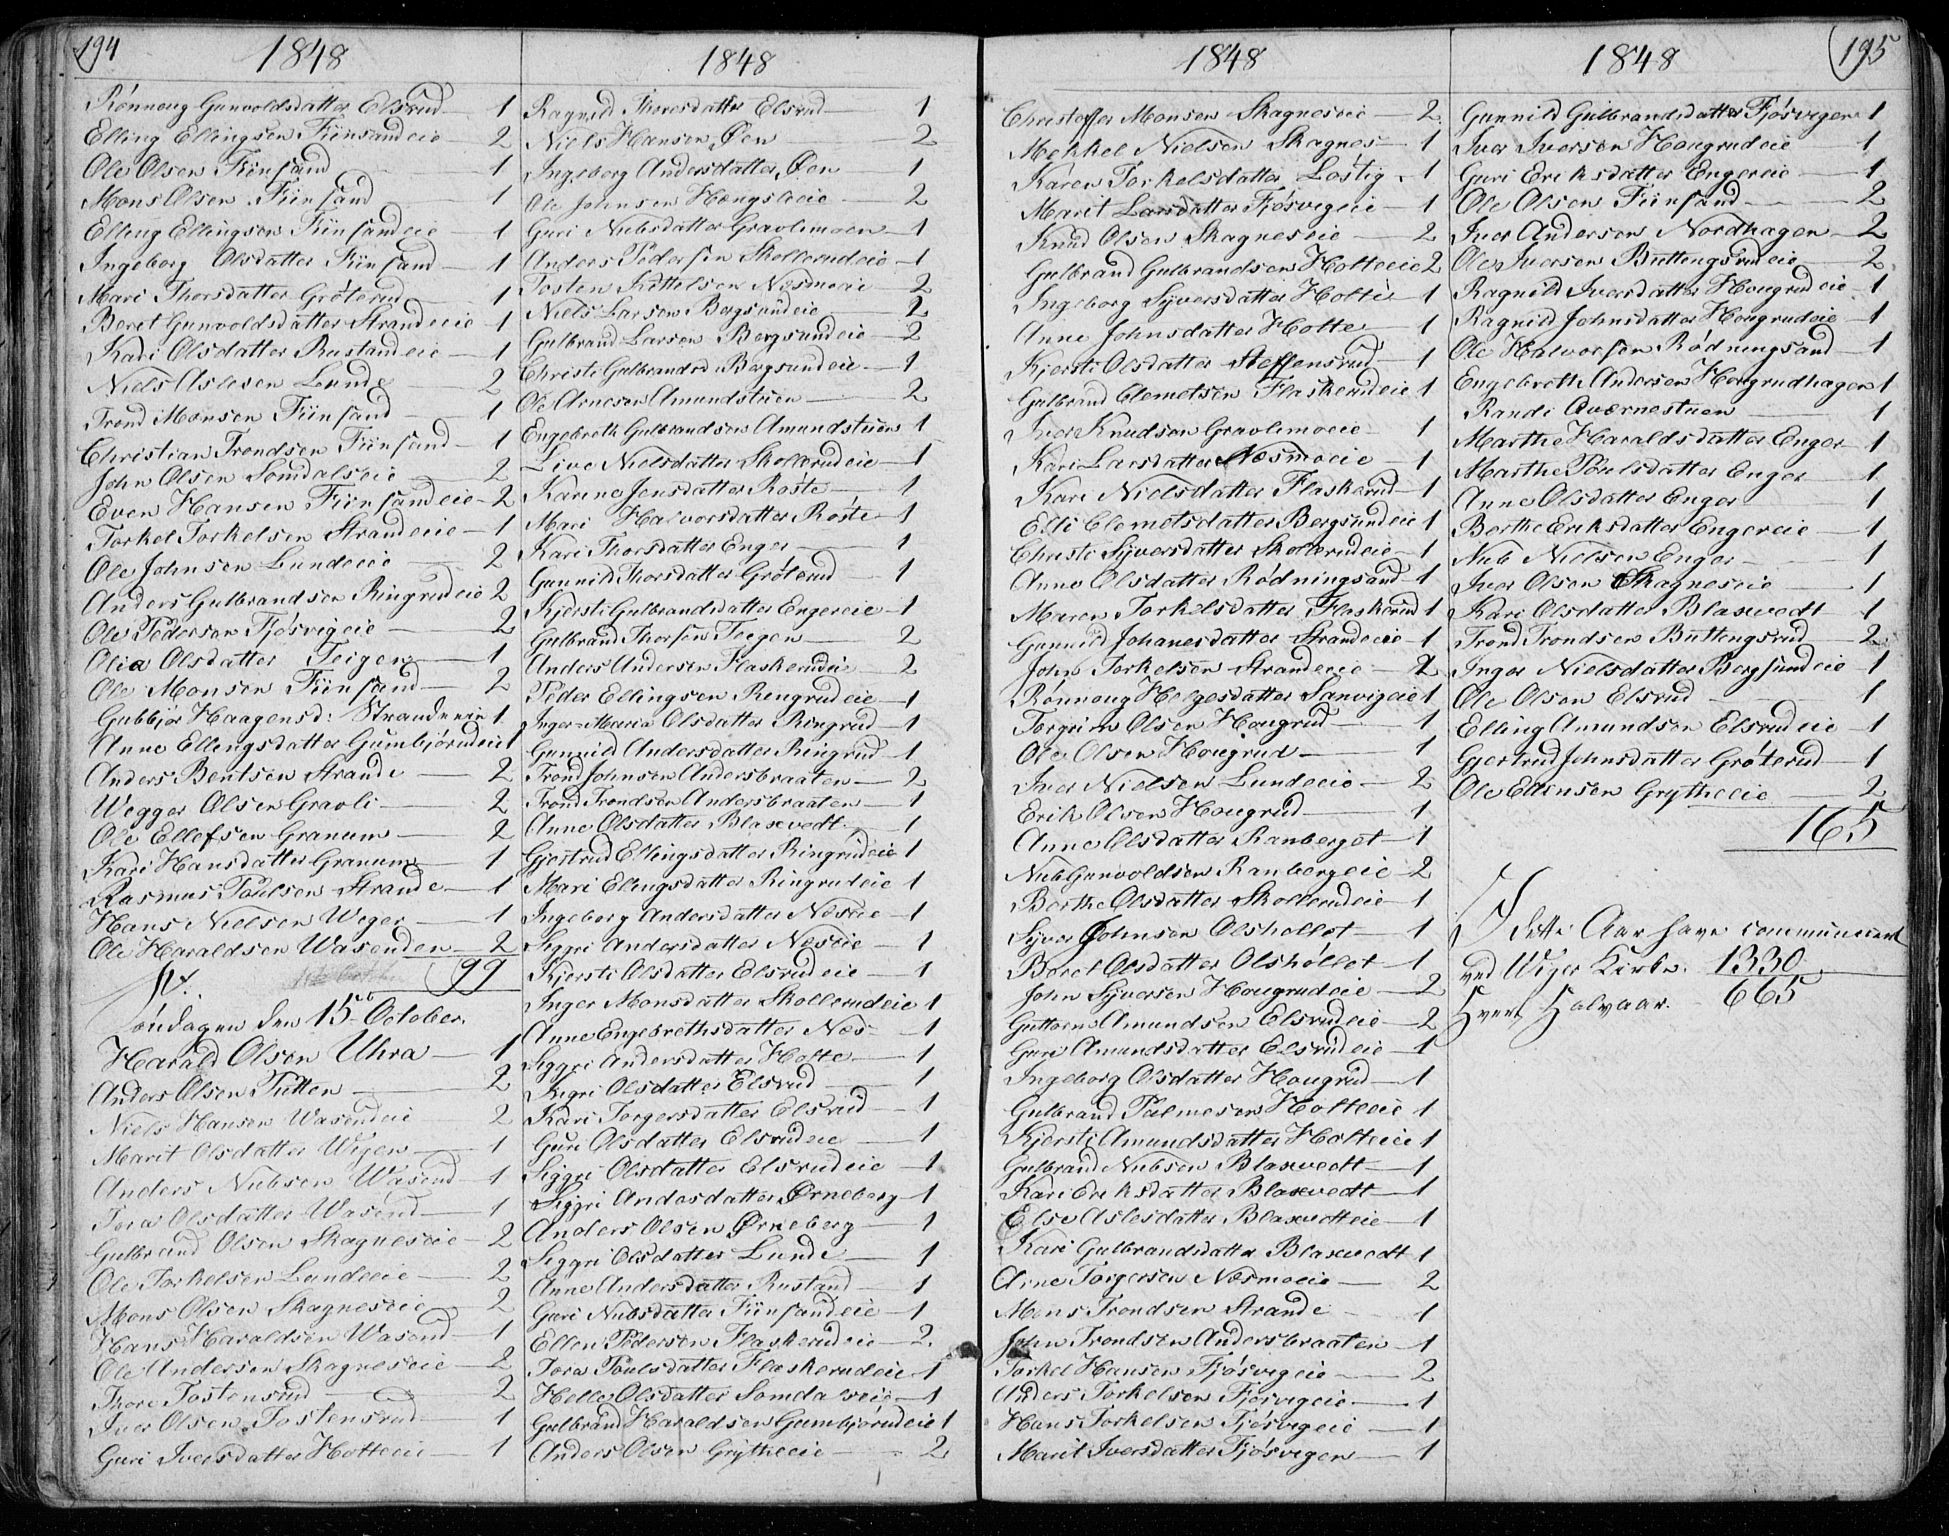 194
1848
Rønnoug Gunvoldsdatter Elsrud 1
Elling Ellingsen Fiinsandeie 2
Ole Olsen Fiinsand 1
Mons Olsen Fiinsand 1
Elling Ellingsen Fiinsandeie 1
Ingeborg Olsdatter Fiinsand 1
Mari Thorsdatter Grøterud 1
Beret Gunvoldsdatter Strandeeie 1
Kari Olsdatter Rustandeie 1
Niels Aslesen Lunde 2
Trond Monsen Fiinsand 1
Christian Trondsen Fiinsand 1
John Olsen Somdalseie 2
Even Hansen Fiinsandeie 2
Torkel Torkelsen Strandeeie 1
Ole Johnsen Lundeeie 2
Anders Gulbrandsen Ringrudeie 2
Ole Pedersen Fjøsvigeie 2
Olia Olsdatter Teigen 1
Ole Monsen Fiinsand 2
Gubbjør Haagensd: Strandeeie 1
Anne Ellingsdatter Gumbjørudeie 1
Anders Bentsen Strande 2
Wegger Olsen Gravli 2
Ole Ellefsen Granum 2
Kari Hansdatter Granum 1
Rasmus Poulsen Strande 1
Hans Nielsen Weger 1
Ole Haraldsen Wasenden 2
99
Søndagen den 15de October.
Harald Olsen Uhra 1
Anders Olsen Putten 2
Niels Hansen Wasendeie 2
Marit Olsdatter Wigen 1
Anders Nubsen Wasend 1
Tora Olsdatter Wasend 1
Gulbrand Olsen Skagneseie 2
Ole Torkelsen Lundeeie 2
Mons Olsen Skagneseie 2
Hans Haraldsen Wasend 1
Ole Andersen Skagneseie 2
Thore Tostensrud 2
Iver Olsen Tostensrud 1
Guri Iversdatter Holteeie 1
1848
Ragnild Thoresdatter Elsrud 1
Niels Hansen Øen 2
Ingeborg Andersdatter Øen 1
Ole Johnsen Hængsleeie 2
Guri Nubsdatter Gravlimoen 1
Anders Pedersen Skollerudeie 1
Tosten Kittelsen Næsmoeie 2
Niels Larsen Bergsundeie 2
Gulbrand Larsen Bergsundeie 2
Christi Gulbrandsd Bergsundeie 1
Ole Arnesen Amundstuen 2
Engebreth Gulbrandsen Amundstuen 1
Live Nielsdatter Skollerudeie 1
Karine Jensdatter Røste 1
Mari Halvorsdatter Røste 1
Kari Thorsdatter Enger 1
Gunnild Thorsdatter Grøterud 1
Kjersti Gulbrandsdatter Engereie 1
Gulbrand Thorsen Teegen 2
Anders Andersen Flaskerudeie 2
Peder Ellingsen Ringrudeie 1
Inger Maria Olsdatter Ringrud 1
Gunnild Andersdatter Ringrud 1
Trond Johnsen Andersbraaten 2
Trond Trondsen Andersbraaten 1
Anne Olsdatter Blaxvedt 1
Gjertrud Ellingsdatter Ringrudeie 1
Mari Elingsdatter Ringrudeie 1
Ingeborg Andersdatter Næseie 1
Siggri Andersdatter Næseie 1
Kjersti Olsdatter Elsrudeie 1
Inger Monsdatter Skollerudeie 1
Anne Engebrethsdatter Næs 1
Siggri Andersdatter Holte 1
Sigri Olsdatter Elsrud 1
Kari Torgersdatter Elsrud 1
Guri Olsdatter Elsrudeie 1
Siggri Olsdatter Elsrudeie 1
Siggri Andesdatter Ørneberg 1
Anders Olsen Ørneberg 1
Siggri Olsdatter Lunde 1
Anne Andersdatter Rustand 1
Guri Nubsdatter Fiinsandeie 1
Ellen Pedersen Flaskerudeie 2
Tora Poulsdatter Flaskerudeie 1
Helle Olsdatter Somdalseie 1
Gulbrand Haraldsen Gumbjørudeie 1
Anders Olsen Grytheeie 2
1848
Christoffer Monsen Skagneseie 2
Mekkel Nielsen Skagnes 1
Karen Torkelsdatter Løstig 1
Marit Larsdatter Fjøsvigeie 1
Knud Olsen Skagneseie 2
Gulbrand Gulbrandsen Holteeie 2
Ingeborg Syversdatter Holte 1
Anne Johnsdatter Holte 1
Kjersti Olsdatter Steffensrud 1
Gulbrand Clemetsen Flaskerudeie 1
Iver Knudsen Gravlimoeie 1
Kari Larsdatter Næsmoeie 1
Kari Nielsdatter Flaskerud 1
Elli Clemetsdatter Bergsundeie 1
Christi Syversdatter Skollerudeie 1
Anne Olsdatter Rødningsand 1
Maren Torkelsdatter Flaskerud 1
Gunnild Johanesdatter Strandeeie 1
John Torkelsen Strandeeie 2
Rønnoug Helgesdatter Sanvigeie 1
Torgrim Olsen Hougrud 1
Ole Olsen Hougrud 1
Iver Nielsen Lundeeie 2
Erik Olsen Hougrud 1
Anne Olsdatter Ranberget 1
Nub Gunvoldsen Ranbergeie 2
Berthe Olsdatter Skollerudeie 1
Syver Johnsen Olshollet 1
Beret Olsdatter Olshøllet 1
John Syversen Hougrudeie 2
Guttorm Amundsen Elsrudeie 2
Guri Amundsdatter Elsrudeie 1
Ingeborg Olsdatter Hougrud 1
Gulbrand Palmesen Holteeie 1
Kjersti Amundsdatter Holteeie 1
Gulbrand Nubsen Blaxvedt 1
Kari Eriksdatter Blaxvedt 1
Else Aslesdatter Blaxvedteie 1
Kari Gulbrandsdatter Blaxvedt 1
Arne Torgersen Næsmoeie 2
Mons Trondsen Strande 1
John Trondsen Andersbraaten 1
Torkel Hansen Fjøsvigeie 2
Anders Torkelsen Fjøsvigeie 1
Hans Torkelsen Fjøsvigeie 1
Marit Iversdatter Fjøsvigen 1
1848
195
Gunnild Gulbrandsdatter Fjøsvigen 1
Iver Iversen Hougrudeie 1
Guri Eriksdatter Engereie 1
Ole Olsen Fiinsand 2
Iver Andersen Nordhagen 2
Ole Iversen Buttengsrudeie 2
Ragnild Iversdatter Hougrudeie 1
Ragnild Johnsdatter Hougrudeie 1
Ole Halvorsen Rødningsand 1
Engebreth Andersen Hougrudhagen 1
Randi Qværnestuen 1
Marthe Haraldsdatter Enger 1
Marthe Poulsdatter Enger 1
Anne Olsdatter Enger 1
Berthe Eriksdatter Engereie 1
Nub Nielsen Enger 1
Iver Olsen Skagneseie 1
Kari Olsdatter Blaxvedt 1
Trond Trondsen Buttengsrud 2
Inger Nielsdatter Bergsundeie 1
Ole Olsen Elsrud 1
Elling Amundsen Elsrudeie 1
Gjertrud Johnsdatter Grøterud 1
Ole Ellensen Grytheeie 2
165
I dette Aar have communiceret
ved Wiger Kirke. 1330
Hvert Halvaar. 665